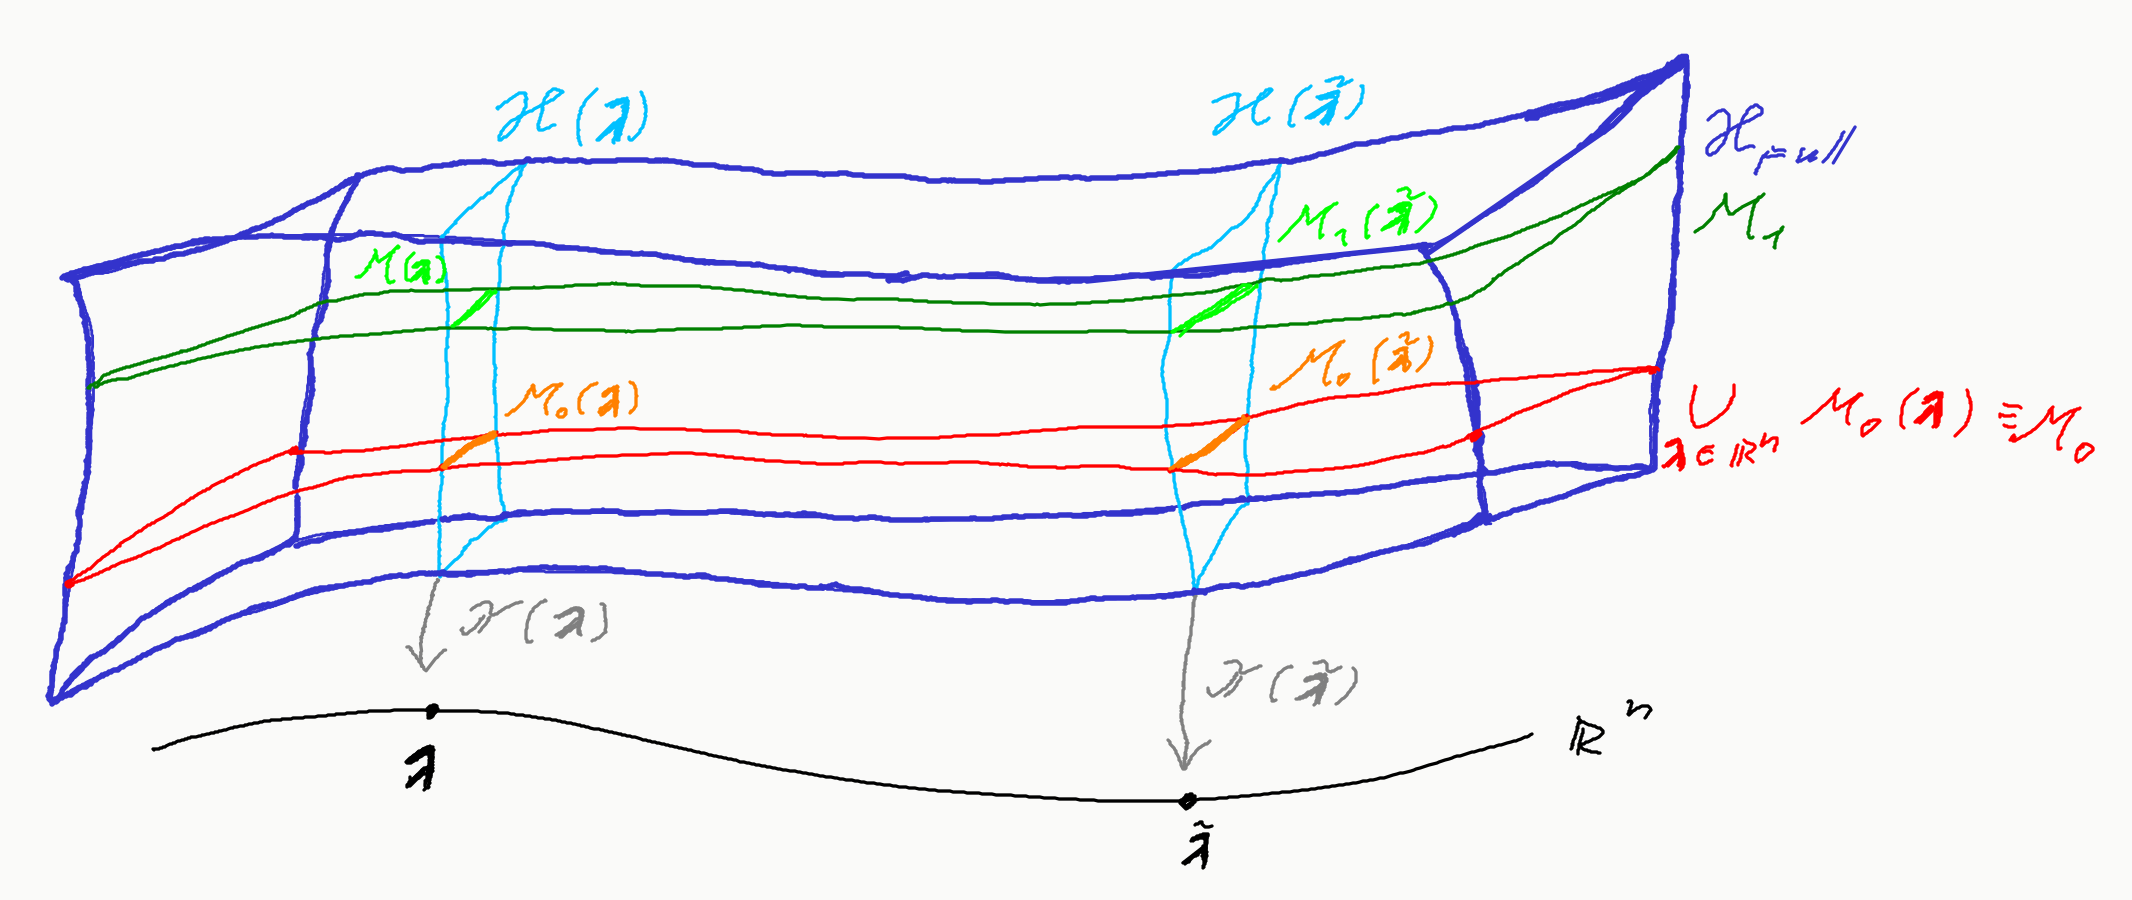 ℋ(λ)
ℋ(λ̃)
ℋ_full
ℳ₁
ℳ₁(λ̃)
ℳ(λ)
ℳ₀(λ̃)
ℳ₀(λ)
⋃_{λ∈ℝⁿ} ℳ₀(λ) ≡ ℳ₀
(λ)
(λ̃)
ℝⁿ
λ
λ̃